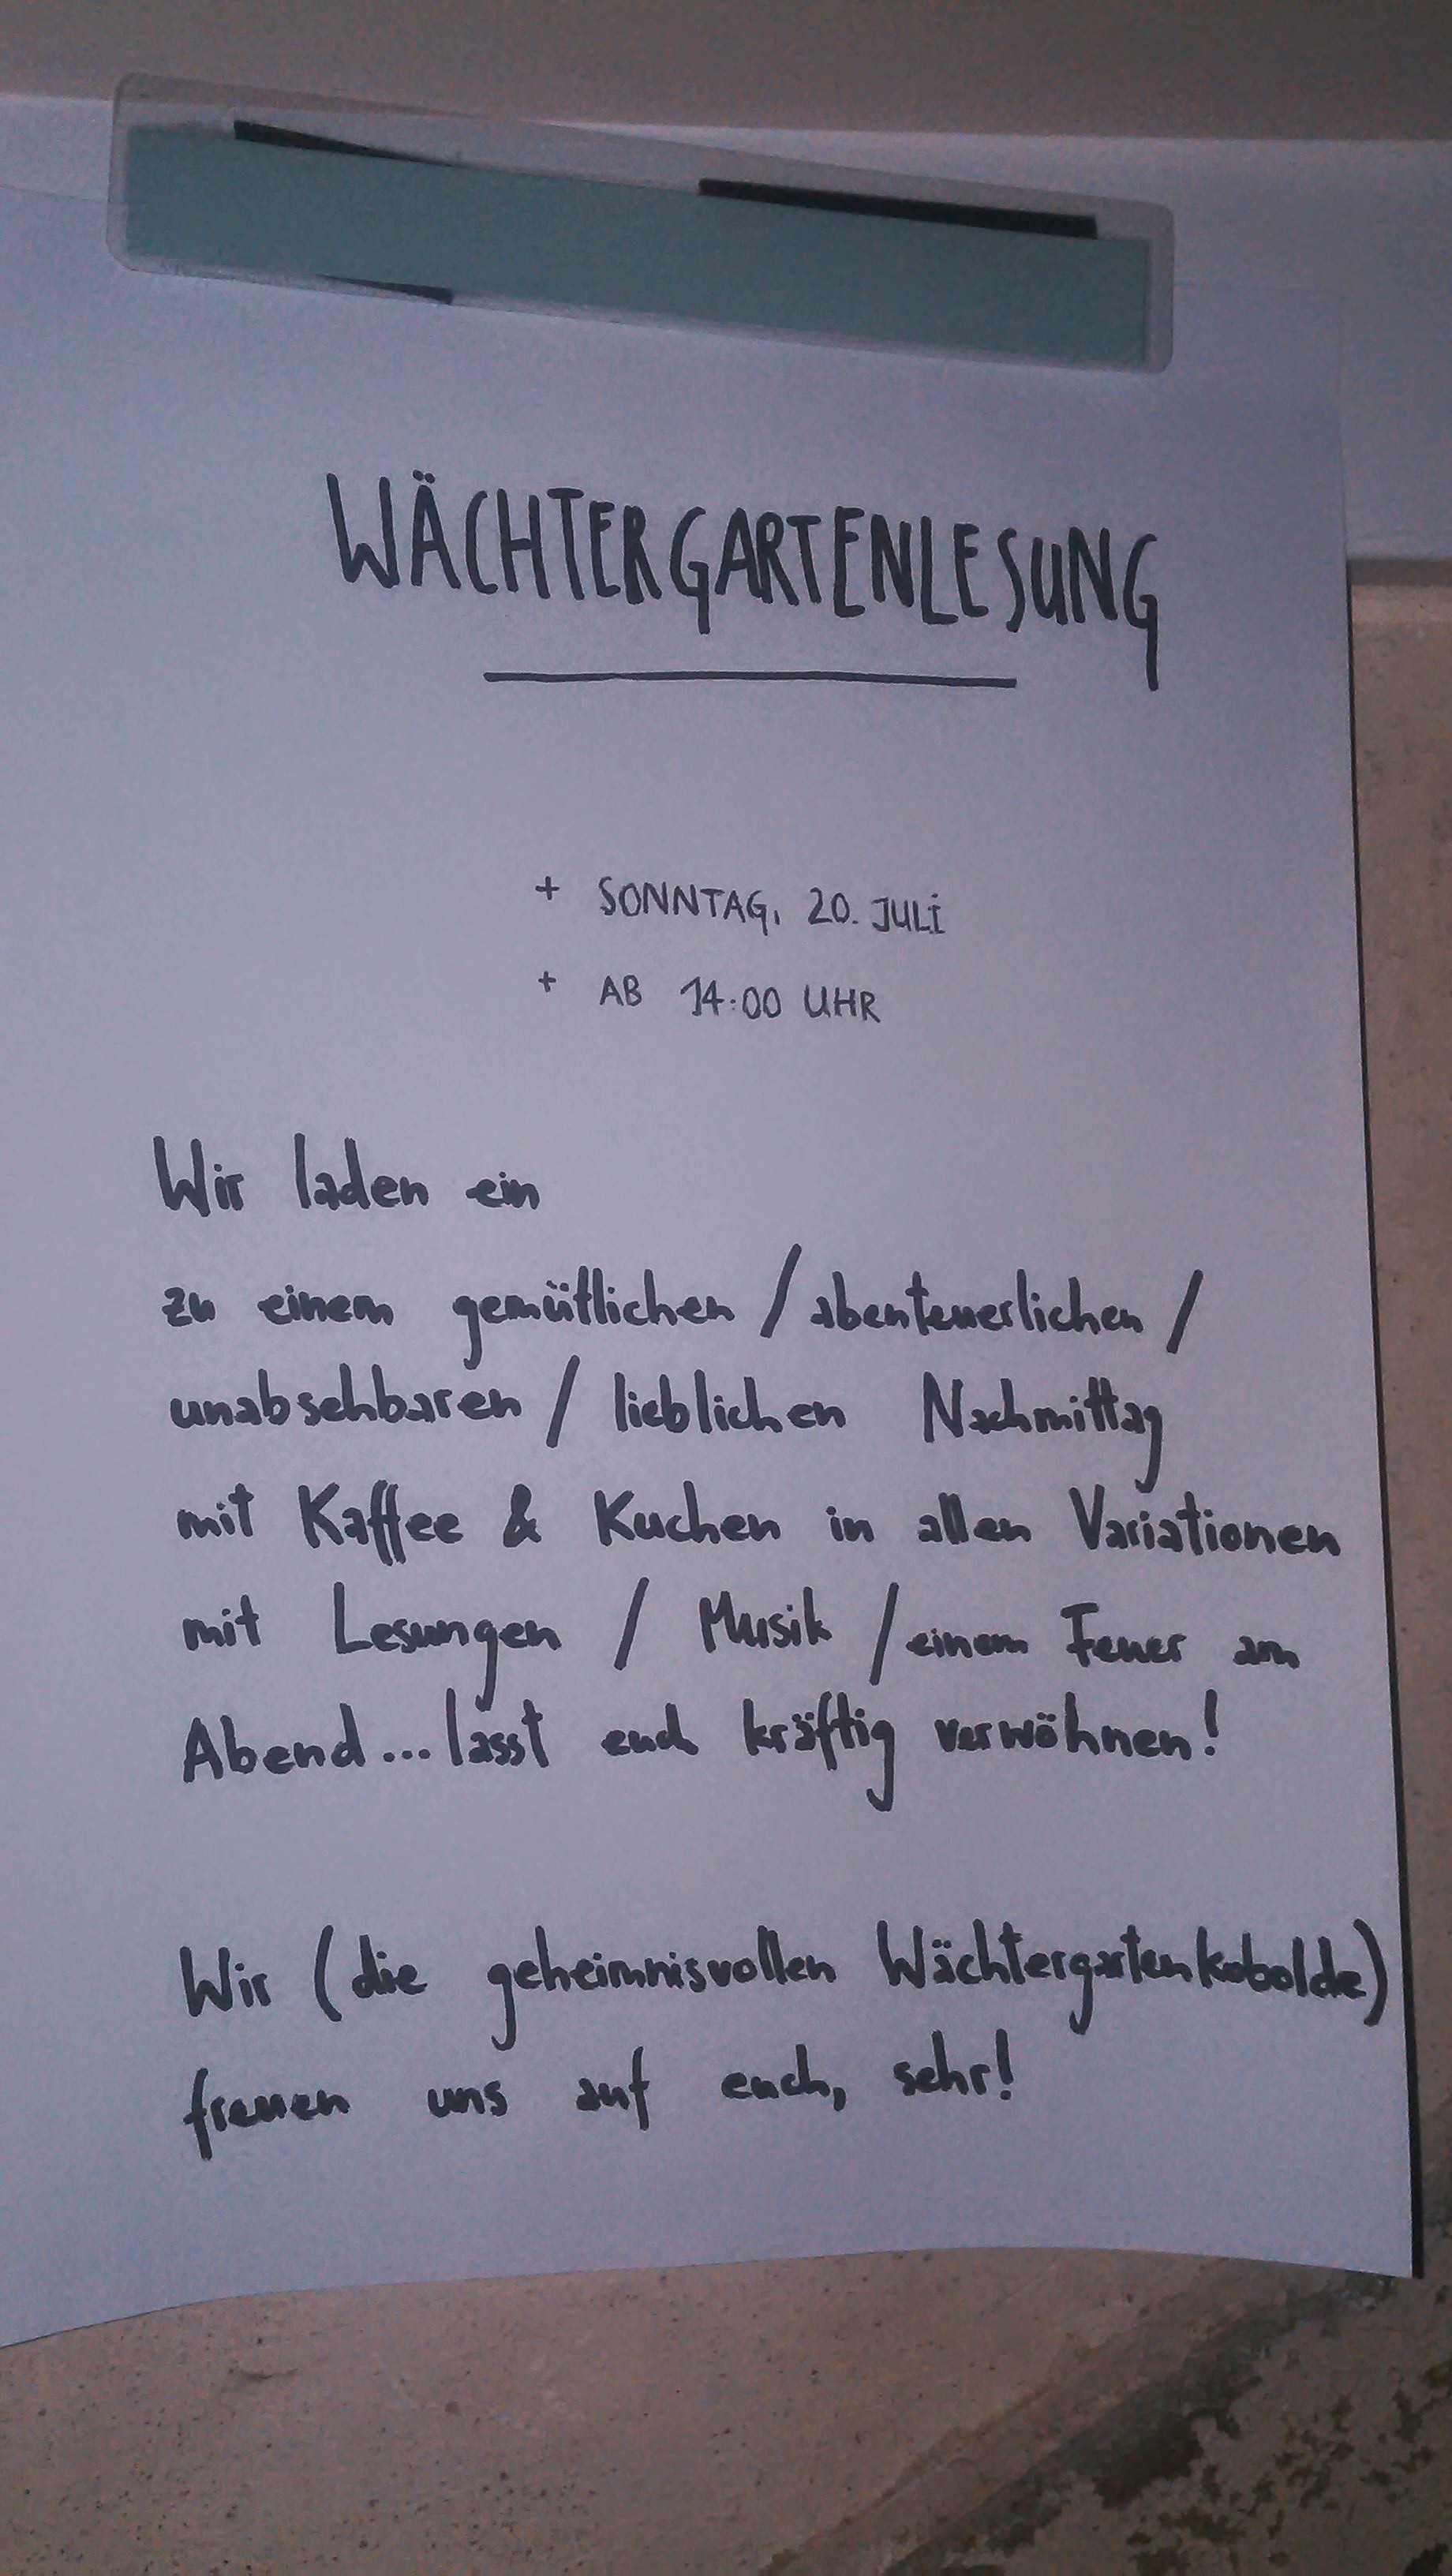 WÄCHTERGARTENLESUNG
+ SONNTAG, 20. JULI
+ AB 14:00 UHR
Wir laden ein
zu einem gemütlichen / abenteuerlichen /
unabsehbaren / lieblichen Nachmittag
mit Kaffee & Kuchen in allen Variationen
mit Lesungen / Musik / einem Feuer am
Abend... lasst euch kräftig verwöhnen!
Wir (die geheimnisvollen Wächtergartenkobolde)
freuen uns auf euch, sehr!